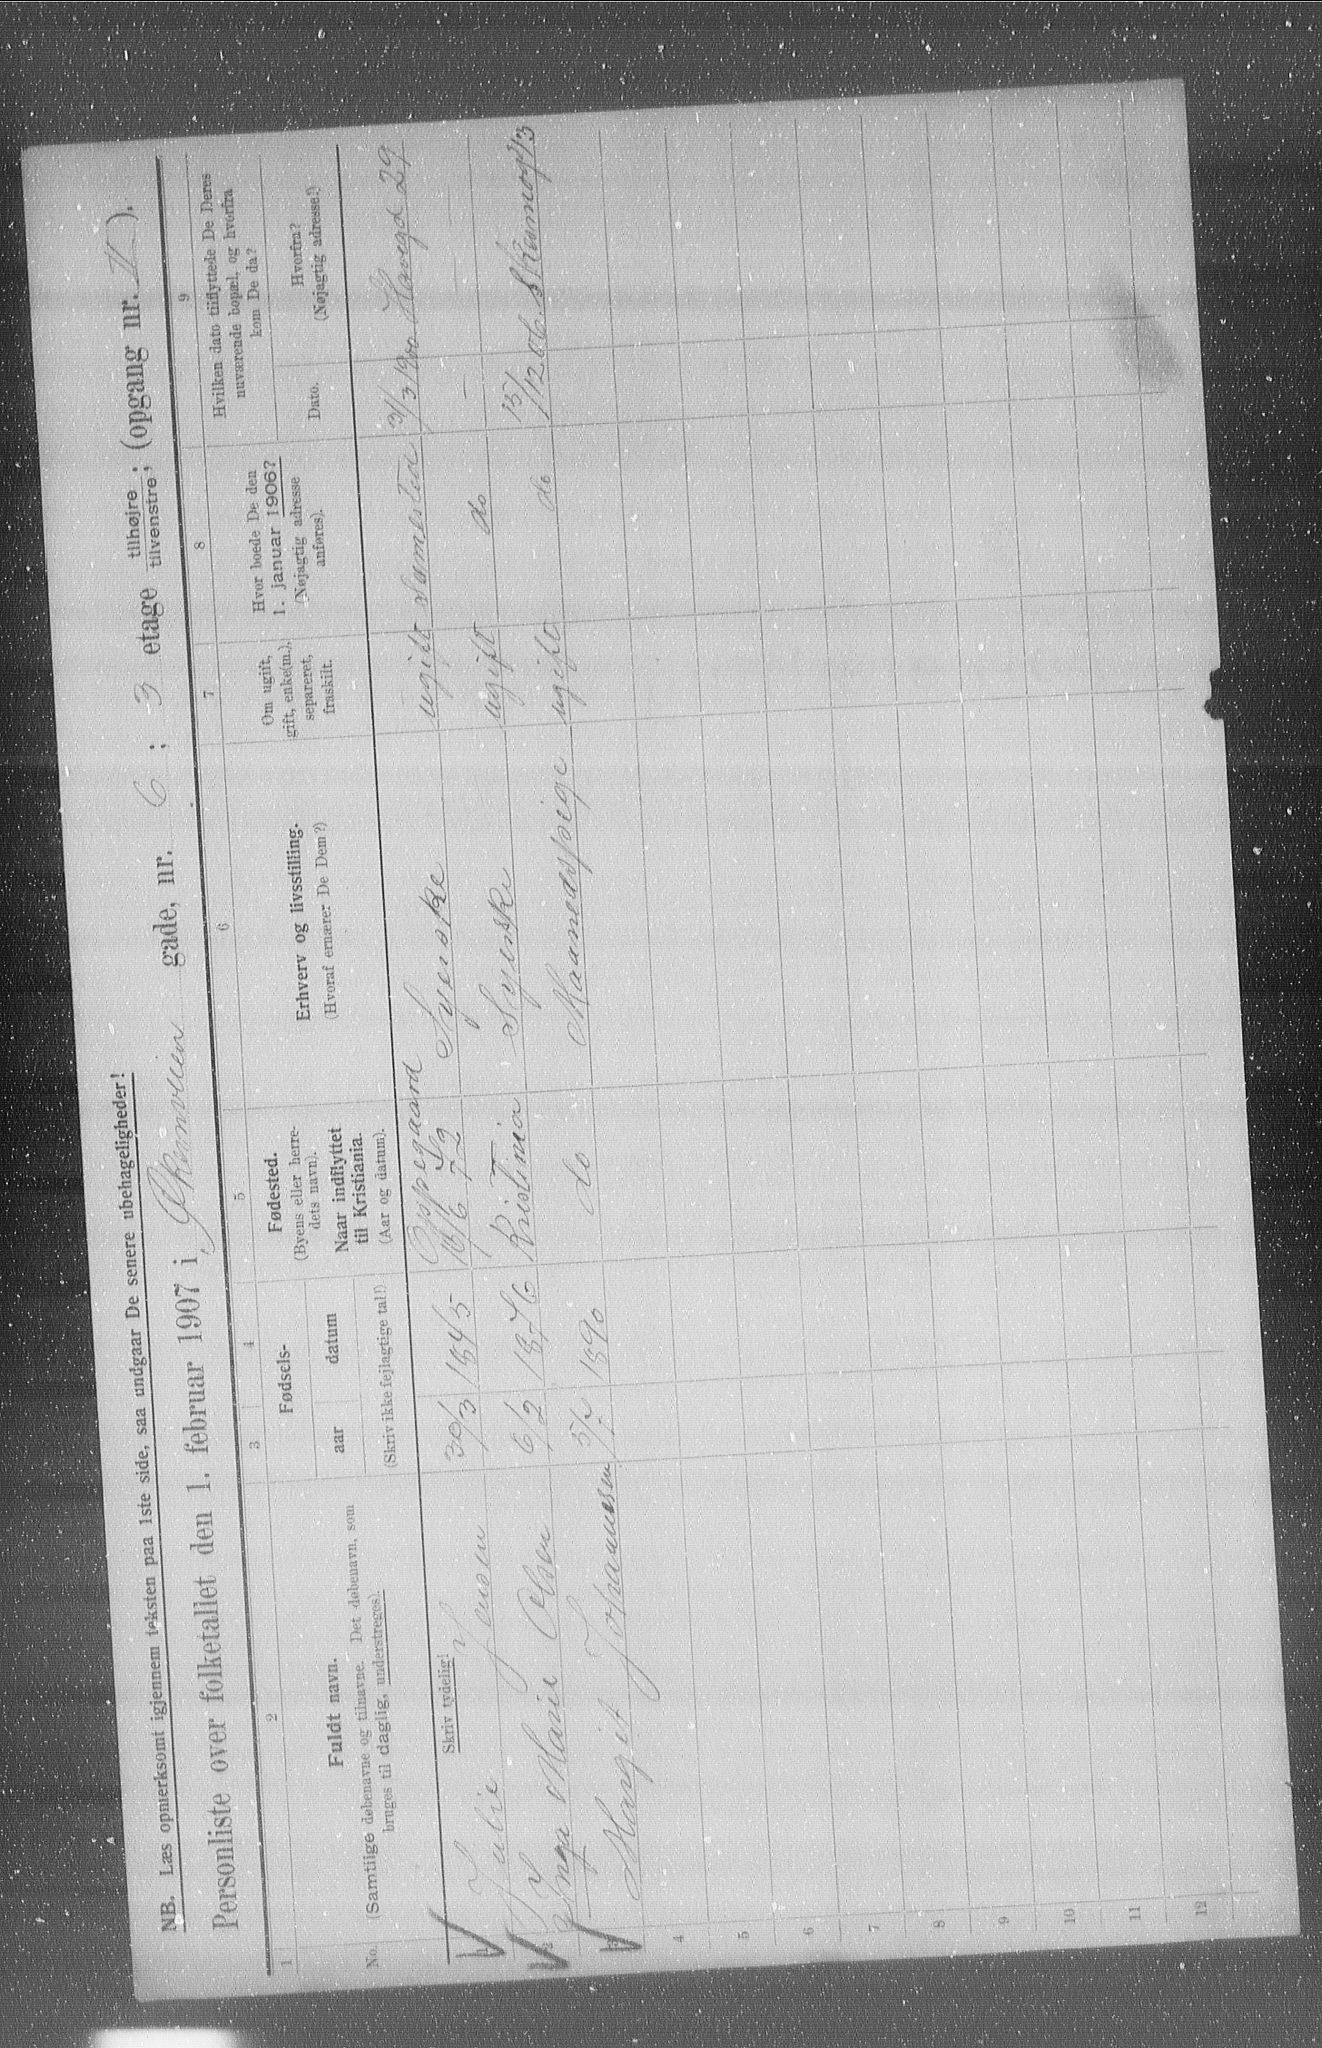 NB. Læs opmerksomt igjennem teksten paa 1ste side, saa undgaar De senere ubehageligheder!
Personliste over folketallet den 1. februar 1907 i Akersveien gade, nr. 6; 3 etage tilhøjre; tilvenstre; (opgang nr. II).
1 2 3 4 5 6 7 8 9
No.
Fuldt navn.
(Samtlige døbenavne og tilnavne. Det døbenavn, som
bruges til daglig, understreges).
Skriv tydelig!
Fødsels-
aar datum
(Skriv ikke fejlagtige tal!)
Fødested.
(Byens eller herre-
dets navn).
Naar indflyttet
til Kristiania.
(Aar og datum).
Erhverv og livsstilling.
(Hvoraf ernærer De Dem?)
Om ugift,
gift, enke(m.),
separeret,
fraskilt.
Hvor boede De den
1. januar 1906?
(Nøjagtig adresse
anføres).
Hvilken dato tilflyttede De Deres
nuværende bopæl, og hvorfra
kom De da?
Dato.
Hvorfra?
(Nøjagtig adresse.)
1 Julie Jensen 30/3 1845 Oppegaard 72 Syerske ugift Samested 31/3 1900 29
2 Inga Marie Olsen 6/2 1876 Kristinia Syerske ugift do —
3 Margit Johannesen 1890 do Maanedspige ugift do 15/12 06
4
5
6
7
8
9
10
11
12